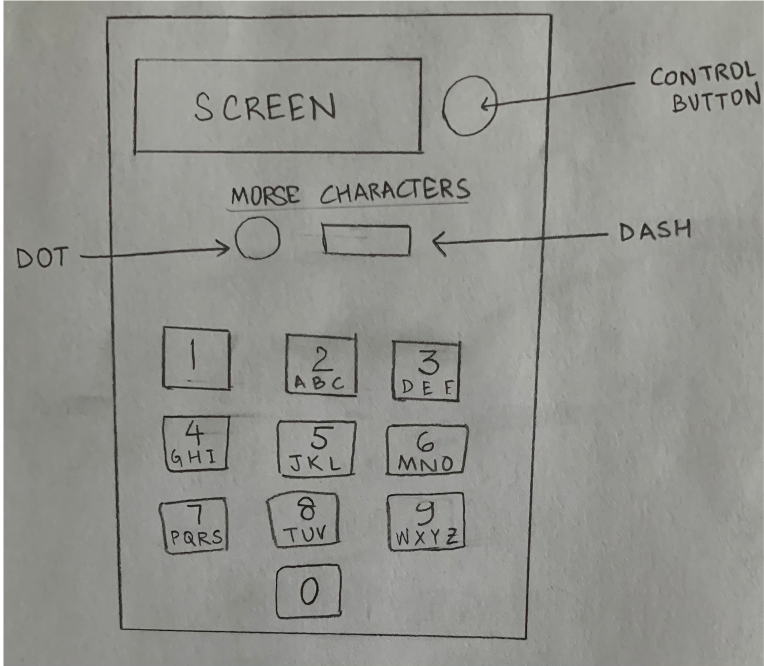 SCREEN
CONTROL
BUTTON
MORSE CHARACTERS
DOT
DASH
1
2
ABC
3
DEF
4
GHI
5
JKL
6
MNO
7
PQRS
8
TUV
9
WXYZ
0